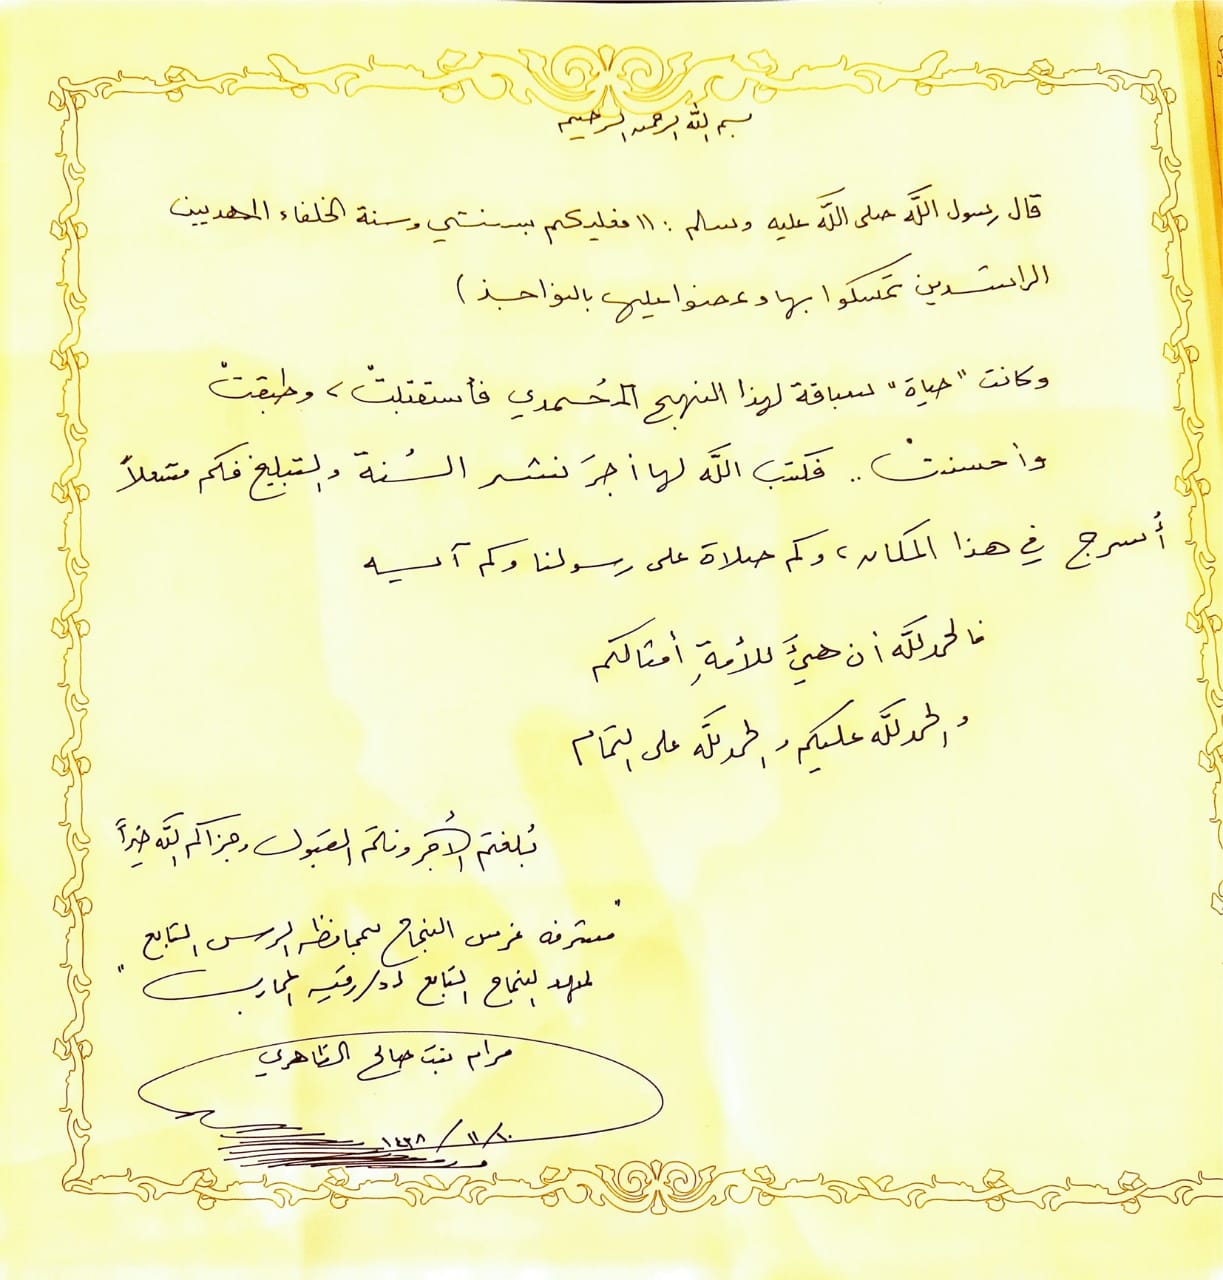 بسم الله الرحمن الرحيم
قال رسول الله صلى الله عليه وسلم : "فعليكم بسنتي وسنة الخلفاء المهديين
الراشدين تمسكوا بها وعضوا عليها بالنواجذ )
وكانت "حياة" سباقة لهذا النهج المُحمدي فأستقبلتْ ، وطبقتْ
وأحسنتْ .. فكتب الله لها أجرَ نشر السُنة والتبليغ فكم مشعلاً
أُسرج في هذا المكان ، وكم صلاة على رسولنا وكم آسيه
فالحمدلله أن هيَّأ للأمةِ أمثالكم
والحمدلله عليكم والحمدلله على التمام
بُلغتم الأُجر ونلتم القبول وجزاكم الله خيراً
"مشرفة غرس النجاح بمحافظة الرس التابع
لمعهد النجاح التابع لـ د/رقية المحارب"
مرام بنت صالح الظاهري
١٤٣٨ / ١١ / ٢٠